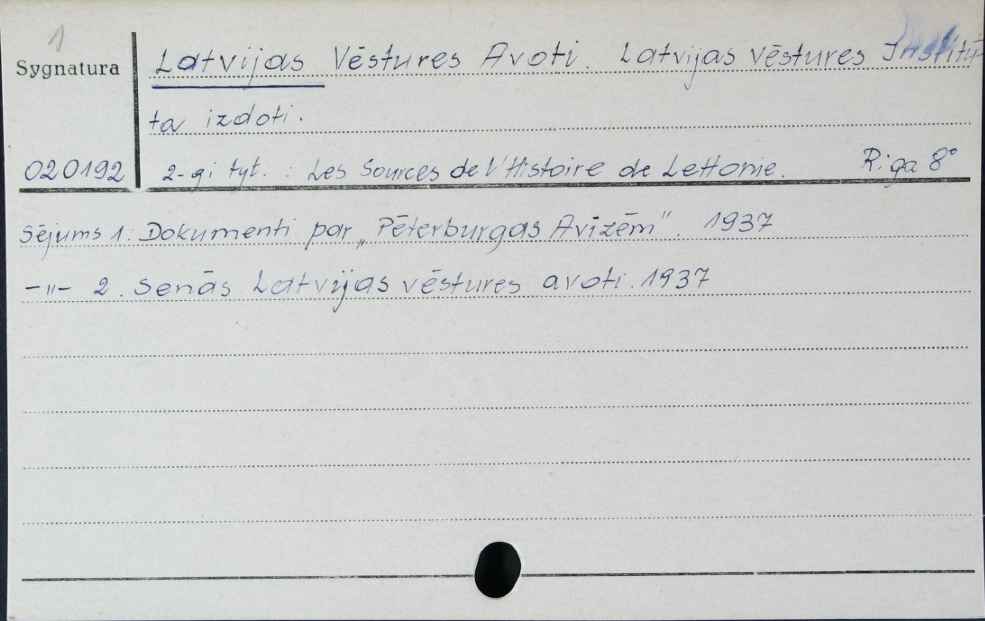 1
Sygnatura
Latvijas Vēstures Avoti. Latvijas Vēstures Institū-
ta izdoti.
020192
2-gi tyt. : Les Sources de l'Histoire de Lettonie. Riga 8°
Sējums 1. Dokumenti par „Pēterburgas Avīzēm". 1937
-"- 2. Senās Latvijas vēstures avoti. 1937